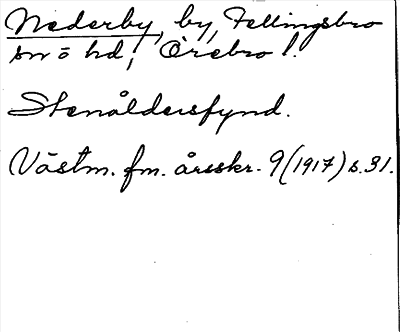 Nederby, by, Fellingsbro
sn o hd, Örebro l.
Stenåldersfynd.
Västm. fm. årsskr. 9 (1917) s. 31.